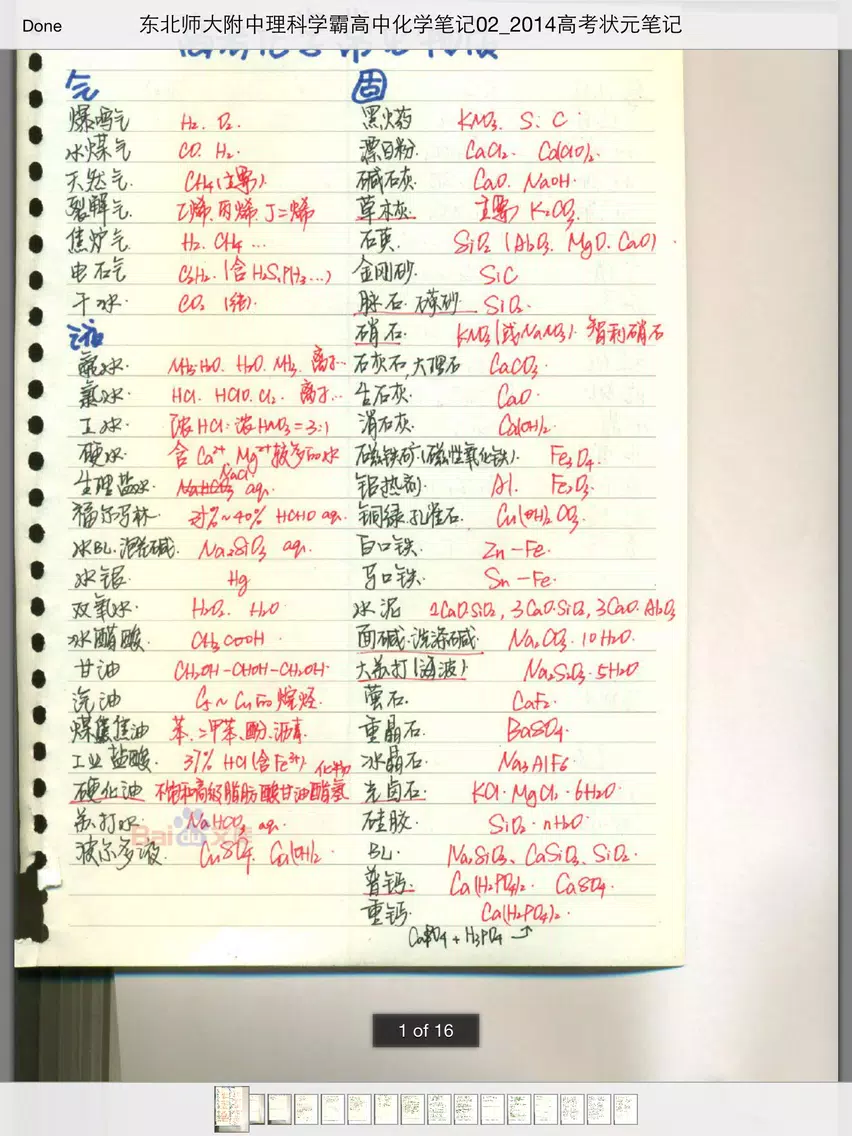 Done
东北师大附中理科学霸高中化学笔记02_2014高考状元笔记
气
爆鸣气 H₂. O₂.
水煤气 CO. H₂.
天然气 CH₄(主要).
裂解气 乙烯.丙烯.丁二烯
焦炉气 H₂. CH₄ ...
电石气 C₂H₂. (含H₂S, PH₃...)
干冰. CO₂
液
氨水. NH₃·H₂O. H₂O. NH₃. 离子...
氯水. HCl. HClO. Cl₂. 离子...
王水. 浓HCl:浓HNO₃=3:1
硬水. 含Ca²⁺ Mg²⁺较多的水
NaCl
生理盐水. aq.
福尔马林 35%~40% HCHO aq.
水BL.泡花碱. Na₂SiO₃ aq.
水银. Hg
双氧水. H₂O₂. H₂O
冰醋酸. CH₃COOH.
甘油 CH₂OH-CHOH-CH₂OH.
汽油 C₅~C₁₁的烷烃.
煤焦油 苯.二甲苯.酚.沥青.
工业盐酸. 37% HCl(含Fe³⁺)
化.
硬化油 不饱和高级脂肪酸甘油酯氢
苏打水. NaHCO₃ aq.
波尔多液 CuSO₄. Ca(OH)₂.
固
黑火药 KNO₃. S. C.
漂白粉. CaCl₂. Ca(ClO)₂.
碱石灰 CaO. NaOH.
草木灰. 主要 K₂CO₃.
石英. SiO₂ (Al₂O₃. MgO. CaO).
金刚砂. SiC
脉石.石英砂. SiO₂.
硝石. KNO₃(或NaNO₃). 智利硝石
石灰石,大理石 CaCO₃.
生石灰. CaO.
消石灰. Ca(OH)₂.
磁铁矿.(磁性氧化铁). Fe₃O₄.
铝热剂. Al. Fe₂O₃.
铜绿.孔雀石. Cu₂(OH)₂CO₃.
白口铁. Zn-Fe.
马口铁. Sn-Fe.
水泥 2CaO.SiO₂, 3CaO.SiO₂, 3CaO.Al₂O₃
面碱.洗涤碱. Na₂CO₃·10H₂O.
大苏打(海波) Na₂S₂O₃·5H₂O
萤石. CaF₂.
重晶石. BaSO₄.
冰晶石. Na₃AlF₆.
光卤石. KCl·MgCl₂·6H₂O.
硅胶. SiO₂·nH₂O.
BL. Na₂SiO₃、CaSiO₃、SiO₂.
普钙. Ca(H₂PO₄)₂. CaSO₄.
重钙. Ca(H₂PO₄)₂.
+ H₃PO₄ →
Baidu文库
1 of 16